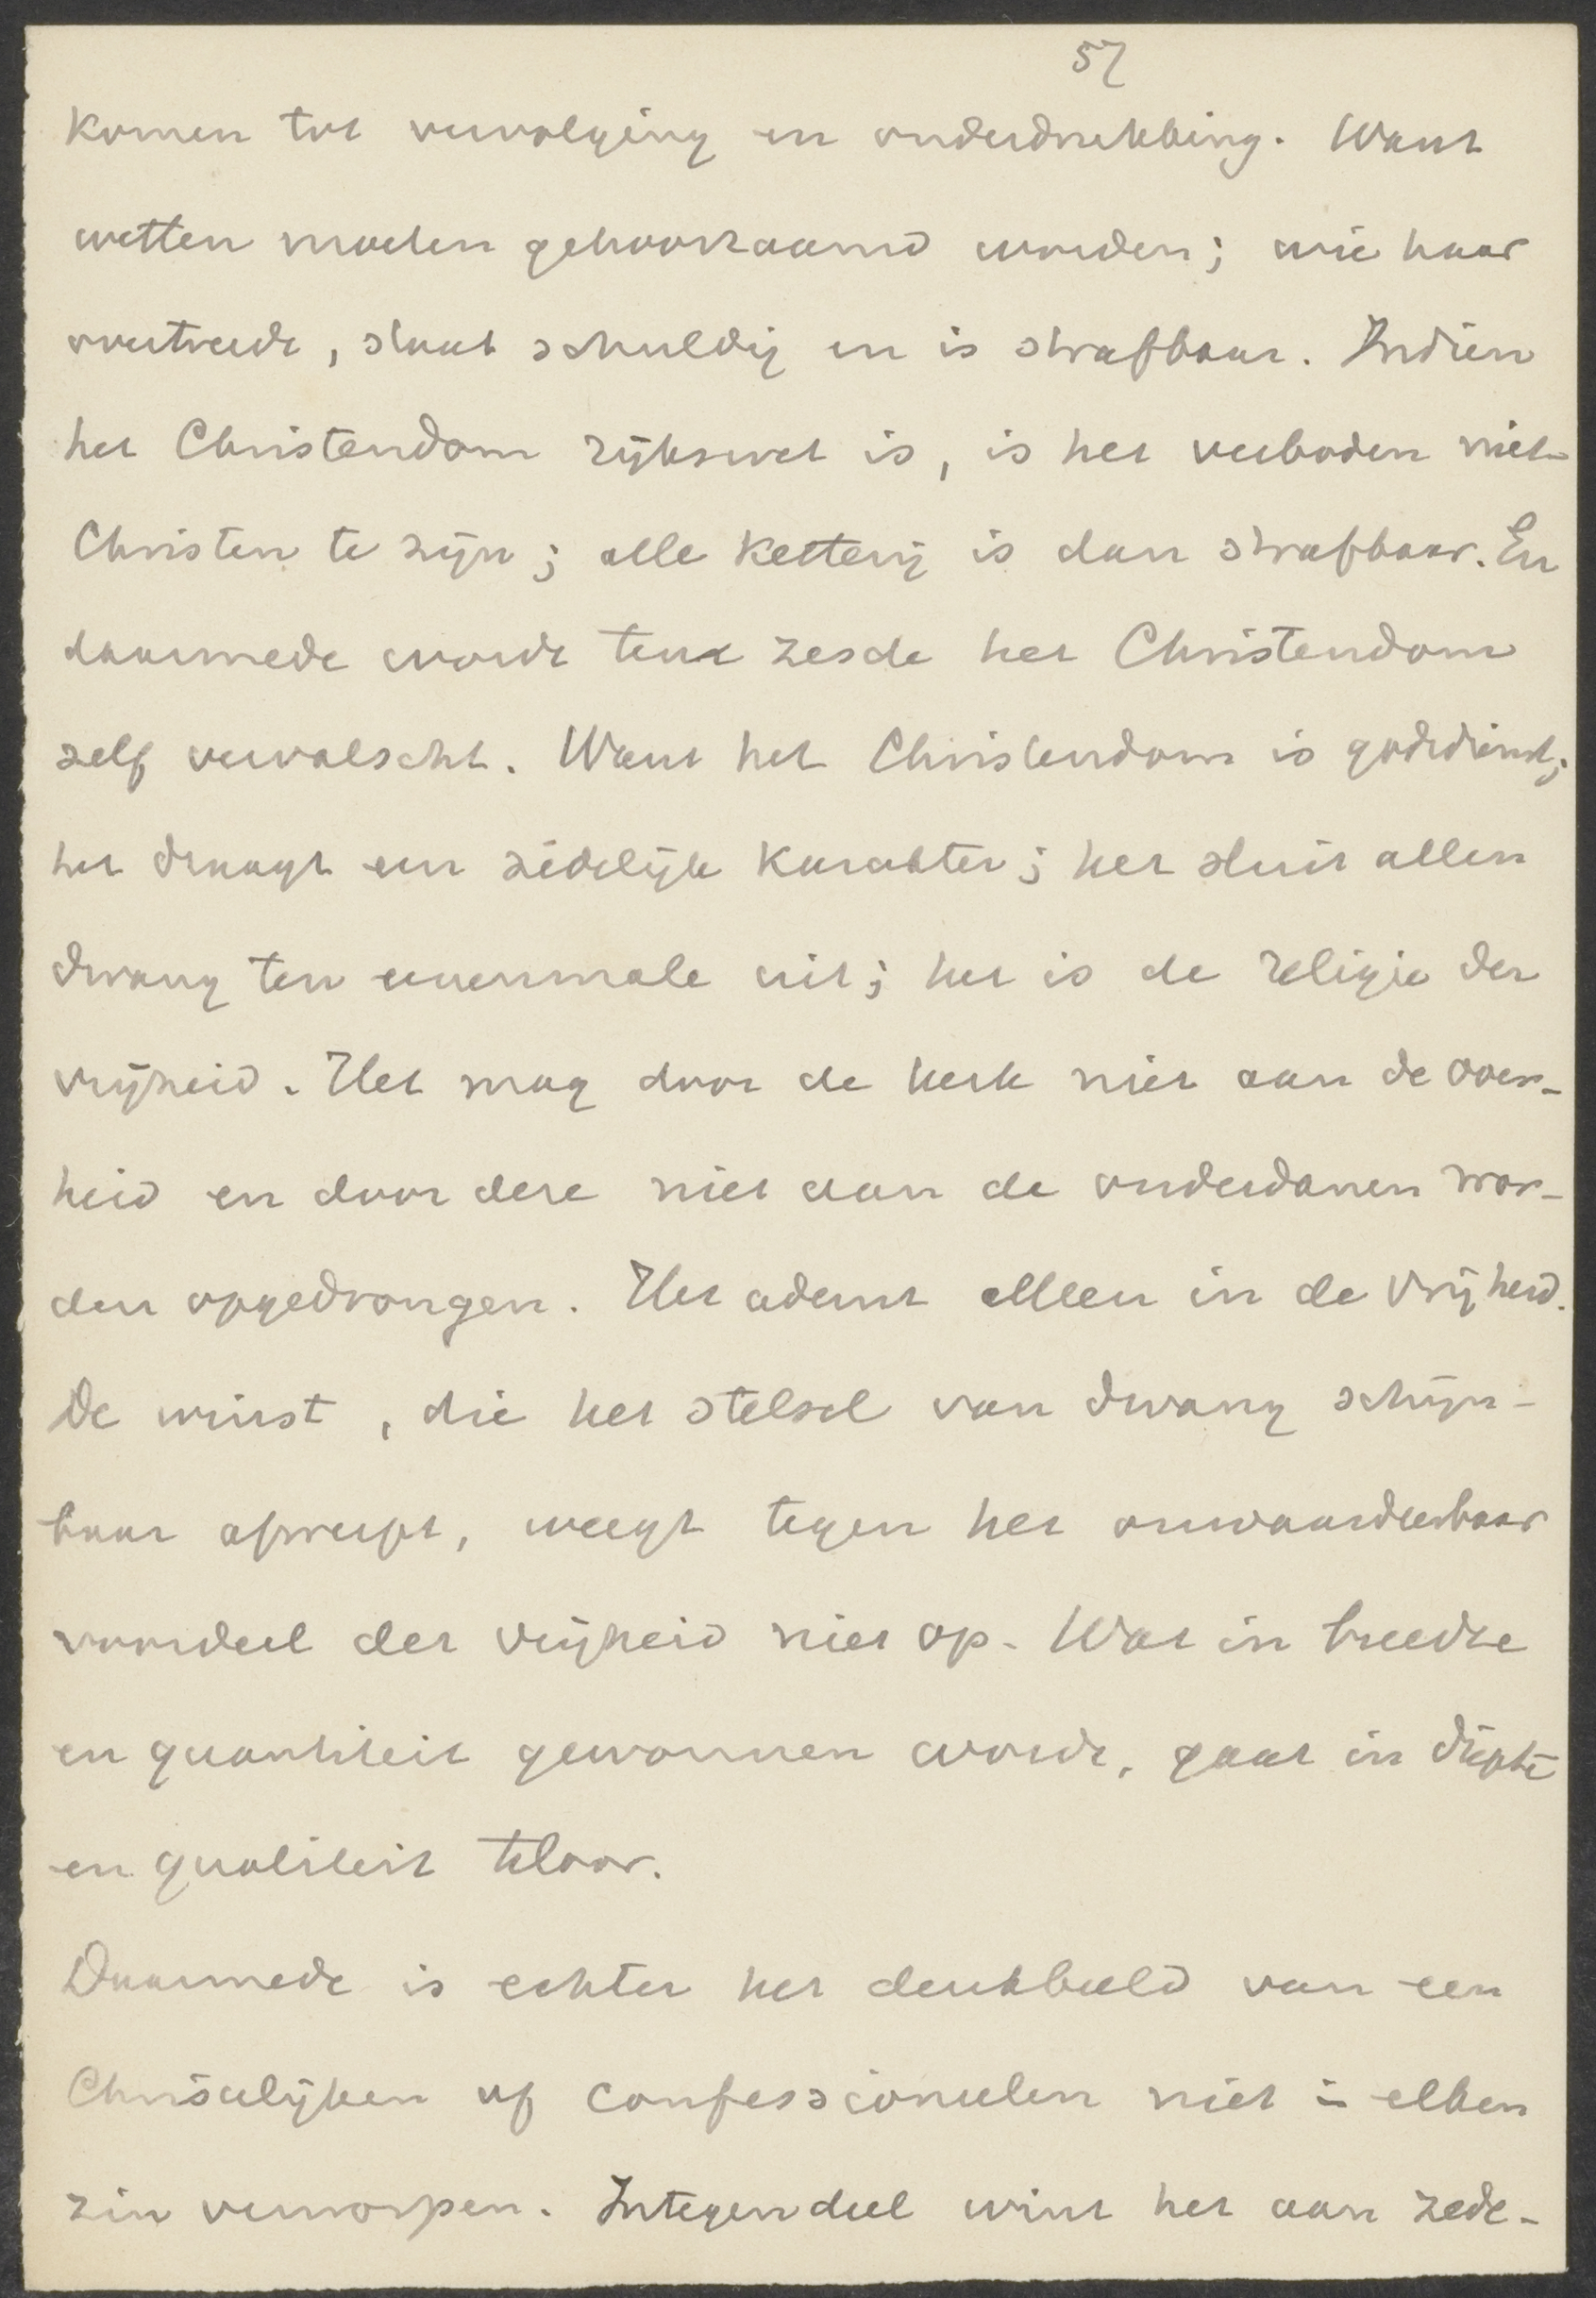 57
komen tot vervolging en onderdrukking. Want
wetten moeten gehoorzaamd worden; wie haar
overtreedt, staat schuldig en is strafbaar. Indien
het Christendom rijkswet is, is het verboden niet-
Christen te zijn; alle ketterij is dan strafbaar. En
daarmede wordt ten zesde het Christendom
zelf vervalscht. Want het Christendom is godsdienst;
het draagt een zedelijk karakter; het sluit allen
dwang ten eenenmale uit; het is de religie der
vrijheid. Het mag door de kerk niet aan de over-
heid en door deze niet aan de onderdanen wor-
den opgedrongen. Het ademt alleen in de vrijheid.
De winst, die het stelsel van dwang schijn-
baar afwerpt, weegt tegen het onwaardeerbaar
voordeel der vrijheid niet op. Wat in breedte
en quantiteit gewonnen wordt, gaat in diepte
en qualiteit teloor.
Daarmede is echter het denkbeeld van een
Christelijken of confessioneelen niet in elken
zin verworpen. Integendeel wint het aan zede-